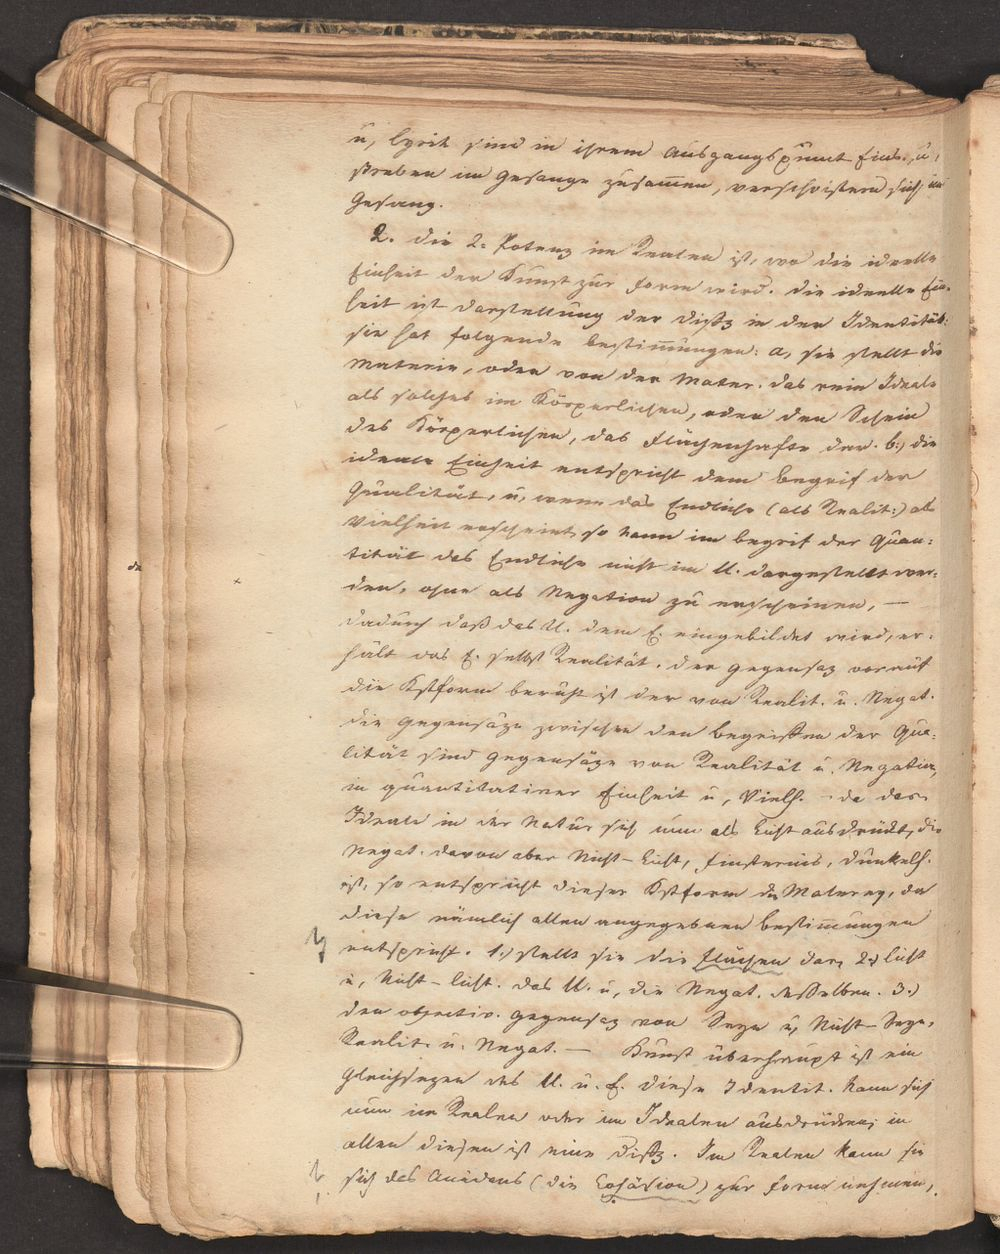 u, Lyrik sind in ihrem Ausgangspunct Eins, u,
streben im Gesange zusam̅en, verschwistern sich im
Gesang.
2. die 2. Potenz im Realen ist, wo die ideelle
Einheit der Kunst zur Form wird. die ideelle Ein-
heit ist Darstellung der Diffz in der Identität:
sie hat folgende Bestim̅ungen: a, sie stellt die
Materie, oder von der Mater. das rein Ideale
als solches im Körperlichen, oder den Schein
des Körperlichen, das Flächenhafte dar. b.) die
ideale Einheit entspricht dem Begrif der
Qualität, u, wenn das Endliche (als Realit:) als
Vielheit erscheint, so kann im Begrif der Quan:
tität das Endliche nicht im U. dargestellt wer:
den, ohne als Negation zu erscheinen, —
dadurch daß das U. dem E. eingebildet wird, er:
hält das E. selbst Realität. der Gegensaz worauf
die Kstform beruht ist der von Realit. u. Negat.
die Gegensäze zwischen den Begriffen der Qua:
lität sind Gegensäze von Realität u. Negation,
in quantitativer Einheit u, Vielh. – da das
Ideale in der Natur sich nun als Licht ausdrückt, die
Negat. davon aber Nicht-Licht, Finsternis, Dunkelh.
ist, so entspricht dieser Kstform die Malerey, da
diese nämlich allen angegebnen Bestim̅ungen
entspricht. 1.) stellt sie die Flächen dar, 2.) Licht
u, Nicht-Licht. das U. u, die Negat. desselben. 3.)
den objectiv. Gegensaz von Seyn u, Nicht-Seyn,
Realit. u. Negat. — Kunst überhaupt ist ein
Gleichsezen des U. u. E. diese Identit. kann sich
nun im Realen oder im Idealen ausdrücken; in
allen diesen ist eine Diffz. Im Realen kann sie
sich des (die Cohäsion) zur Form nehmen,
da